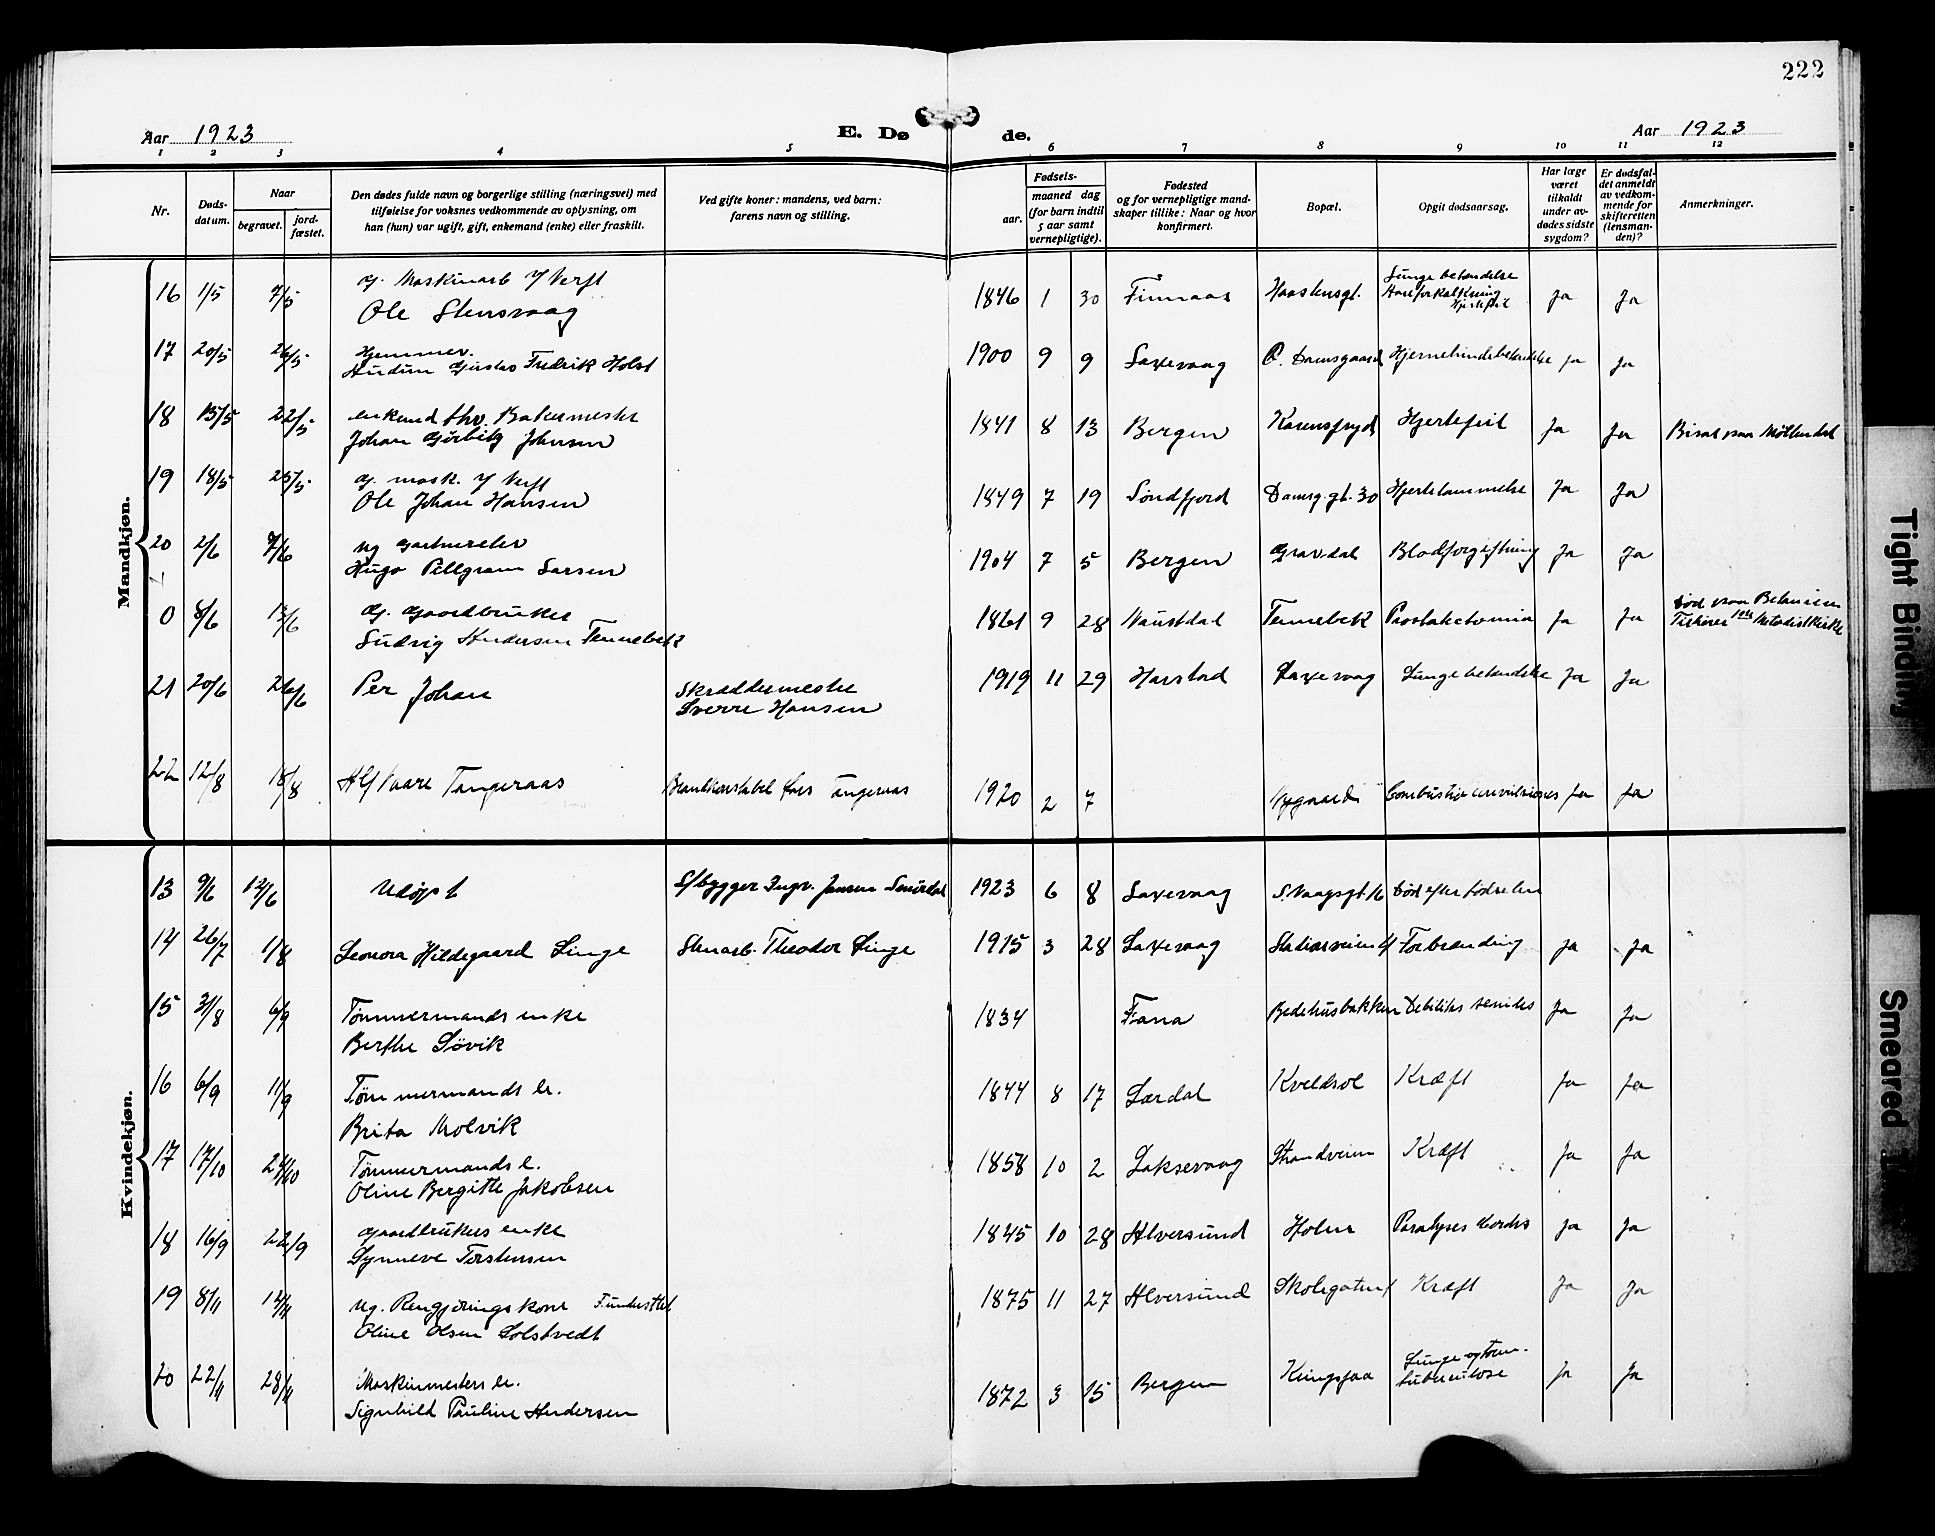 222
Aar 1923
E. Dø de.
Aar 1923
1 2 3 4 5 6 7 8 9 10 11 12
Nr.
Døds-datum.
Naar
begravet.
jord-fæstet.
Den dødes fulde navn og borgerlige stilling (næringsvei) med
tilføielse for voksnes vedkommende av oplysning, om
han (hun) var ugift, gift, enkemand (enke) eller fraskilt.
Ved gifte koner: mandens, ved barn:
farens navn og stilling.
Fødsels-
aar.
maaned dag
(for barn indtil
5 aar samt
vernepligtige).
Fødested
og for vernepligtige mand-
skaper tillike: Naar og hvor
konfirmert.
Bopæl.
Opgit dødsaarsag.
Har læge
været
tilkaldt
under av-
dødes sidste
sygdom?
Er dødsfal-
det anmeldt
av vedkom-
mende for
skifteretten
(lensman-
den)?
Anmerkninger.
Mandkjøn.
16 1/5 7/5 g. Maskinarb v/ Verft
Ole Stensvaag 1846 1 30 Finnaas Lungebetændelse Ja Ja
17 20/5 26/5 Hjemmev.
Gustav Fredrik Holst 1900 9 9 Laxevaag Damsgaard Hjernehindebetændelse Ja Ja
18 15/5 22/5 enkemd fhv. Bakermester
Johan Johnsen 1841 8 13 Bergen Hjertefeil Ja Ja Bisat paa Møllendal
19 18/5 25/5 g. mask. v/ Verft
Ole Johan Hansen 1849 7 19 Søndfjord Damsg. gt. 30 Hjertelammelse Ja Ja
20 2/6 7/6 ug Gartnerelev
Hugo Pellgram Larsen 1904 7 5 Bergen Gravdal Blodforgiftning Ja Ja
0 8/6 13/6 g. Gaardbruker
Ludvig Andersen Tennebek 1861 9 28 Naustdal Tennebek Ja Ja
21 20/6 26/6 Per Johan Skræddermester
Sverre Hansen 1919 11 29 Harstad Laxevaag Lungebetændelse Ja Ja
22 12/8 18/8 Alf Kaare Tangeraas Brandkonstabel Lars Tangeraas 1920 2 7 Nygaard Combustio Ja Ja
Kvindekjøn.
13 9/6 12/6 Udøpt 1923 6 8 Laxevaag Død efter fødselen
14 26/7 1/8 Leonora Hildegaard Linge Stenarb. Theodor Linge 1915 3 28 Laxevaag Forbrænding Ja Ja
15 31/8 6/9 Tømmermands enke
Berthe Løvik 1834 Fana Bedehusbakken Debilitas seniles Ja Ja
16 6/9 11/9 Tømmermands e.
Brita Molvik 1844 8 17 Lærdal Kveldsol Kræft Ja Ja
17 17/10 24/10 Tømmermands e.
Oline Bergitte Jakobsen 1858 10 2 Laksevaag Strandveien Kræft Ja Ja
18 16/9 22/9 Gaardbrukers enke
Synneve Torstensen 1845 10 28 Alversund Holen Paralyses Cordis Ja Ja
19 8/11 12/11 ug. Rengjøringskone
Oline Olsen Solstvedt 1875 11 27 Alversund Skolegaten Kræft Ja Ja
20 22/11 28/11 Maskinmesters e.
Signhild Pauline Andersen 1872 3 15 Bergen Kringsjaa Lunge og
tuberculose Ja Ja
Tight Binding
Smeared